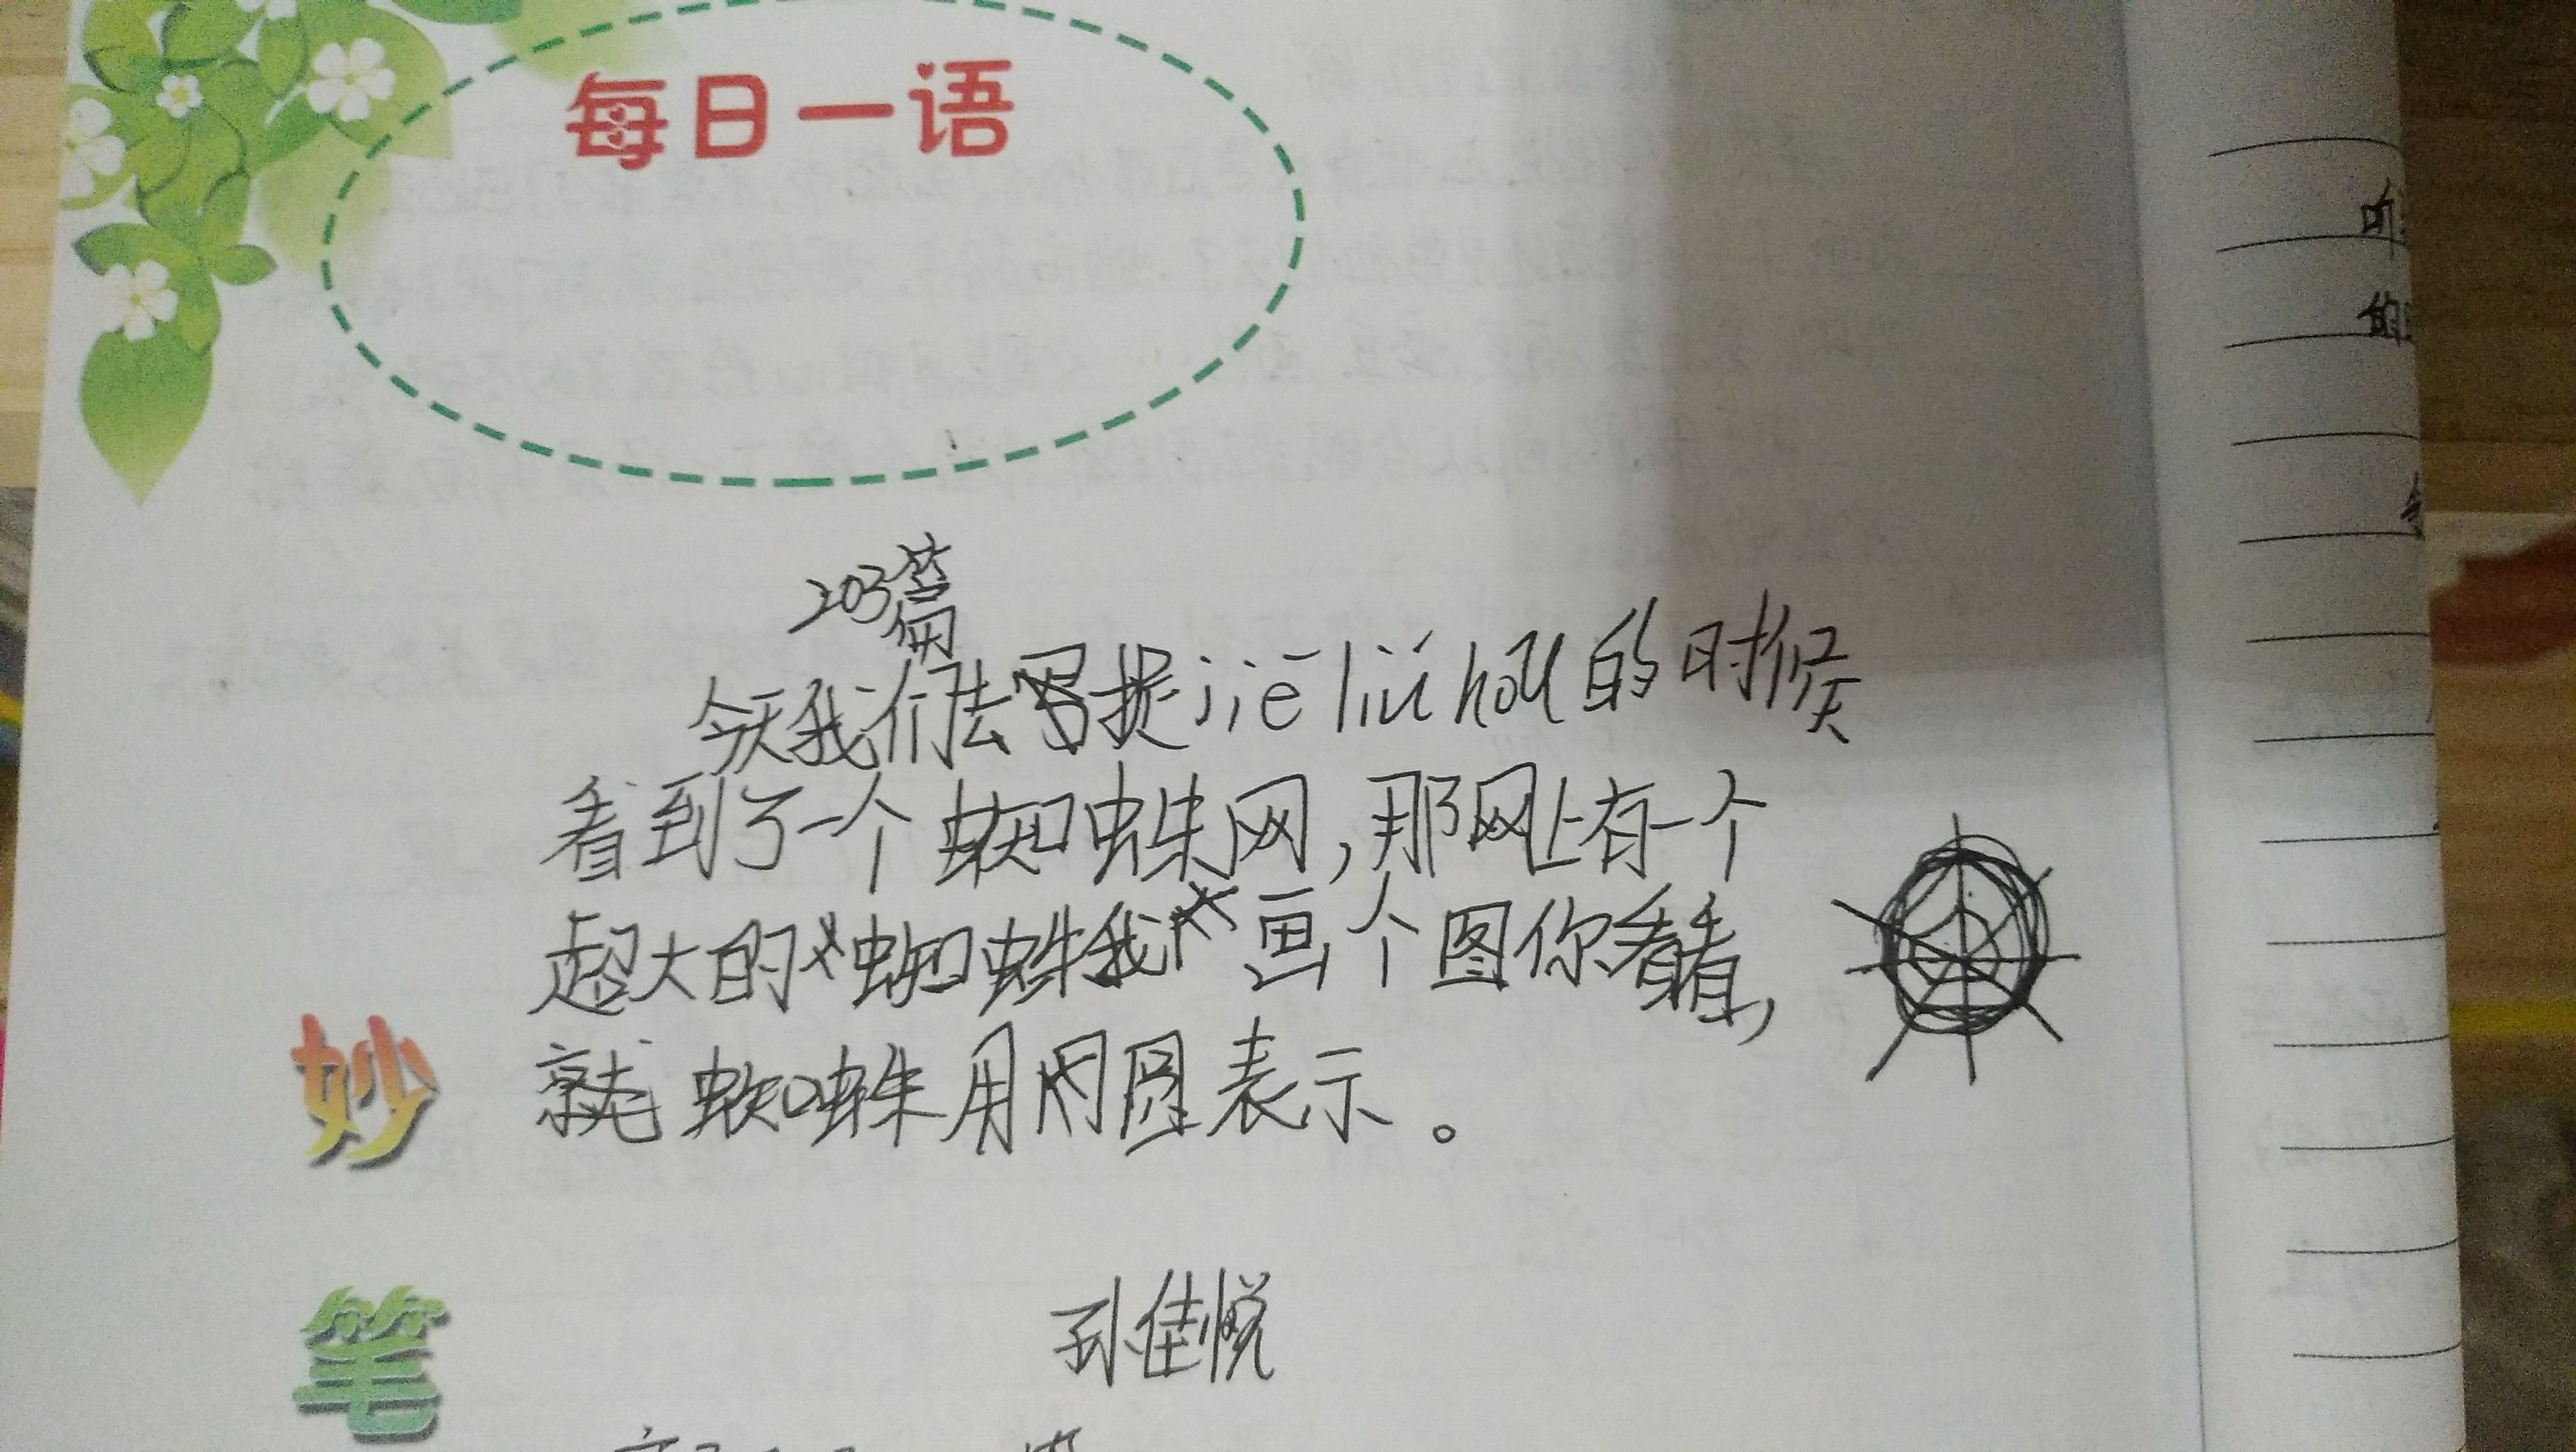 每日一语
203篇
今天我们去捉jiē liú hóu的时候
看到了一个蜘蛛网,那网上有一个
超大的蜘蛛我画个图你看看,
就蜘蛛用圆表示。
妙
孙佳悦
笔
听
的